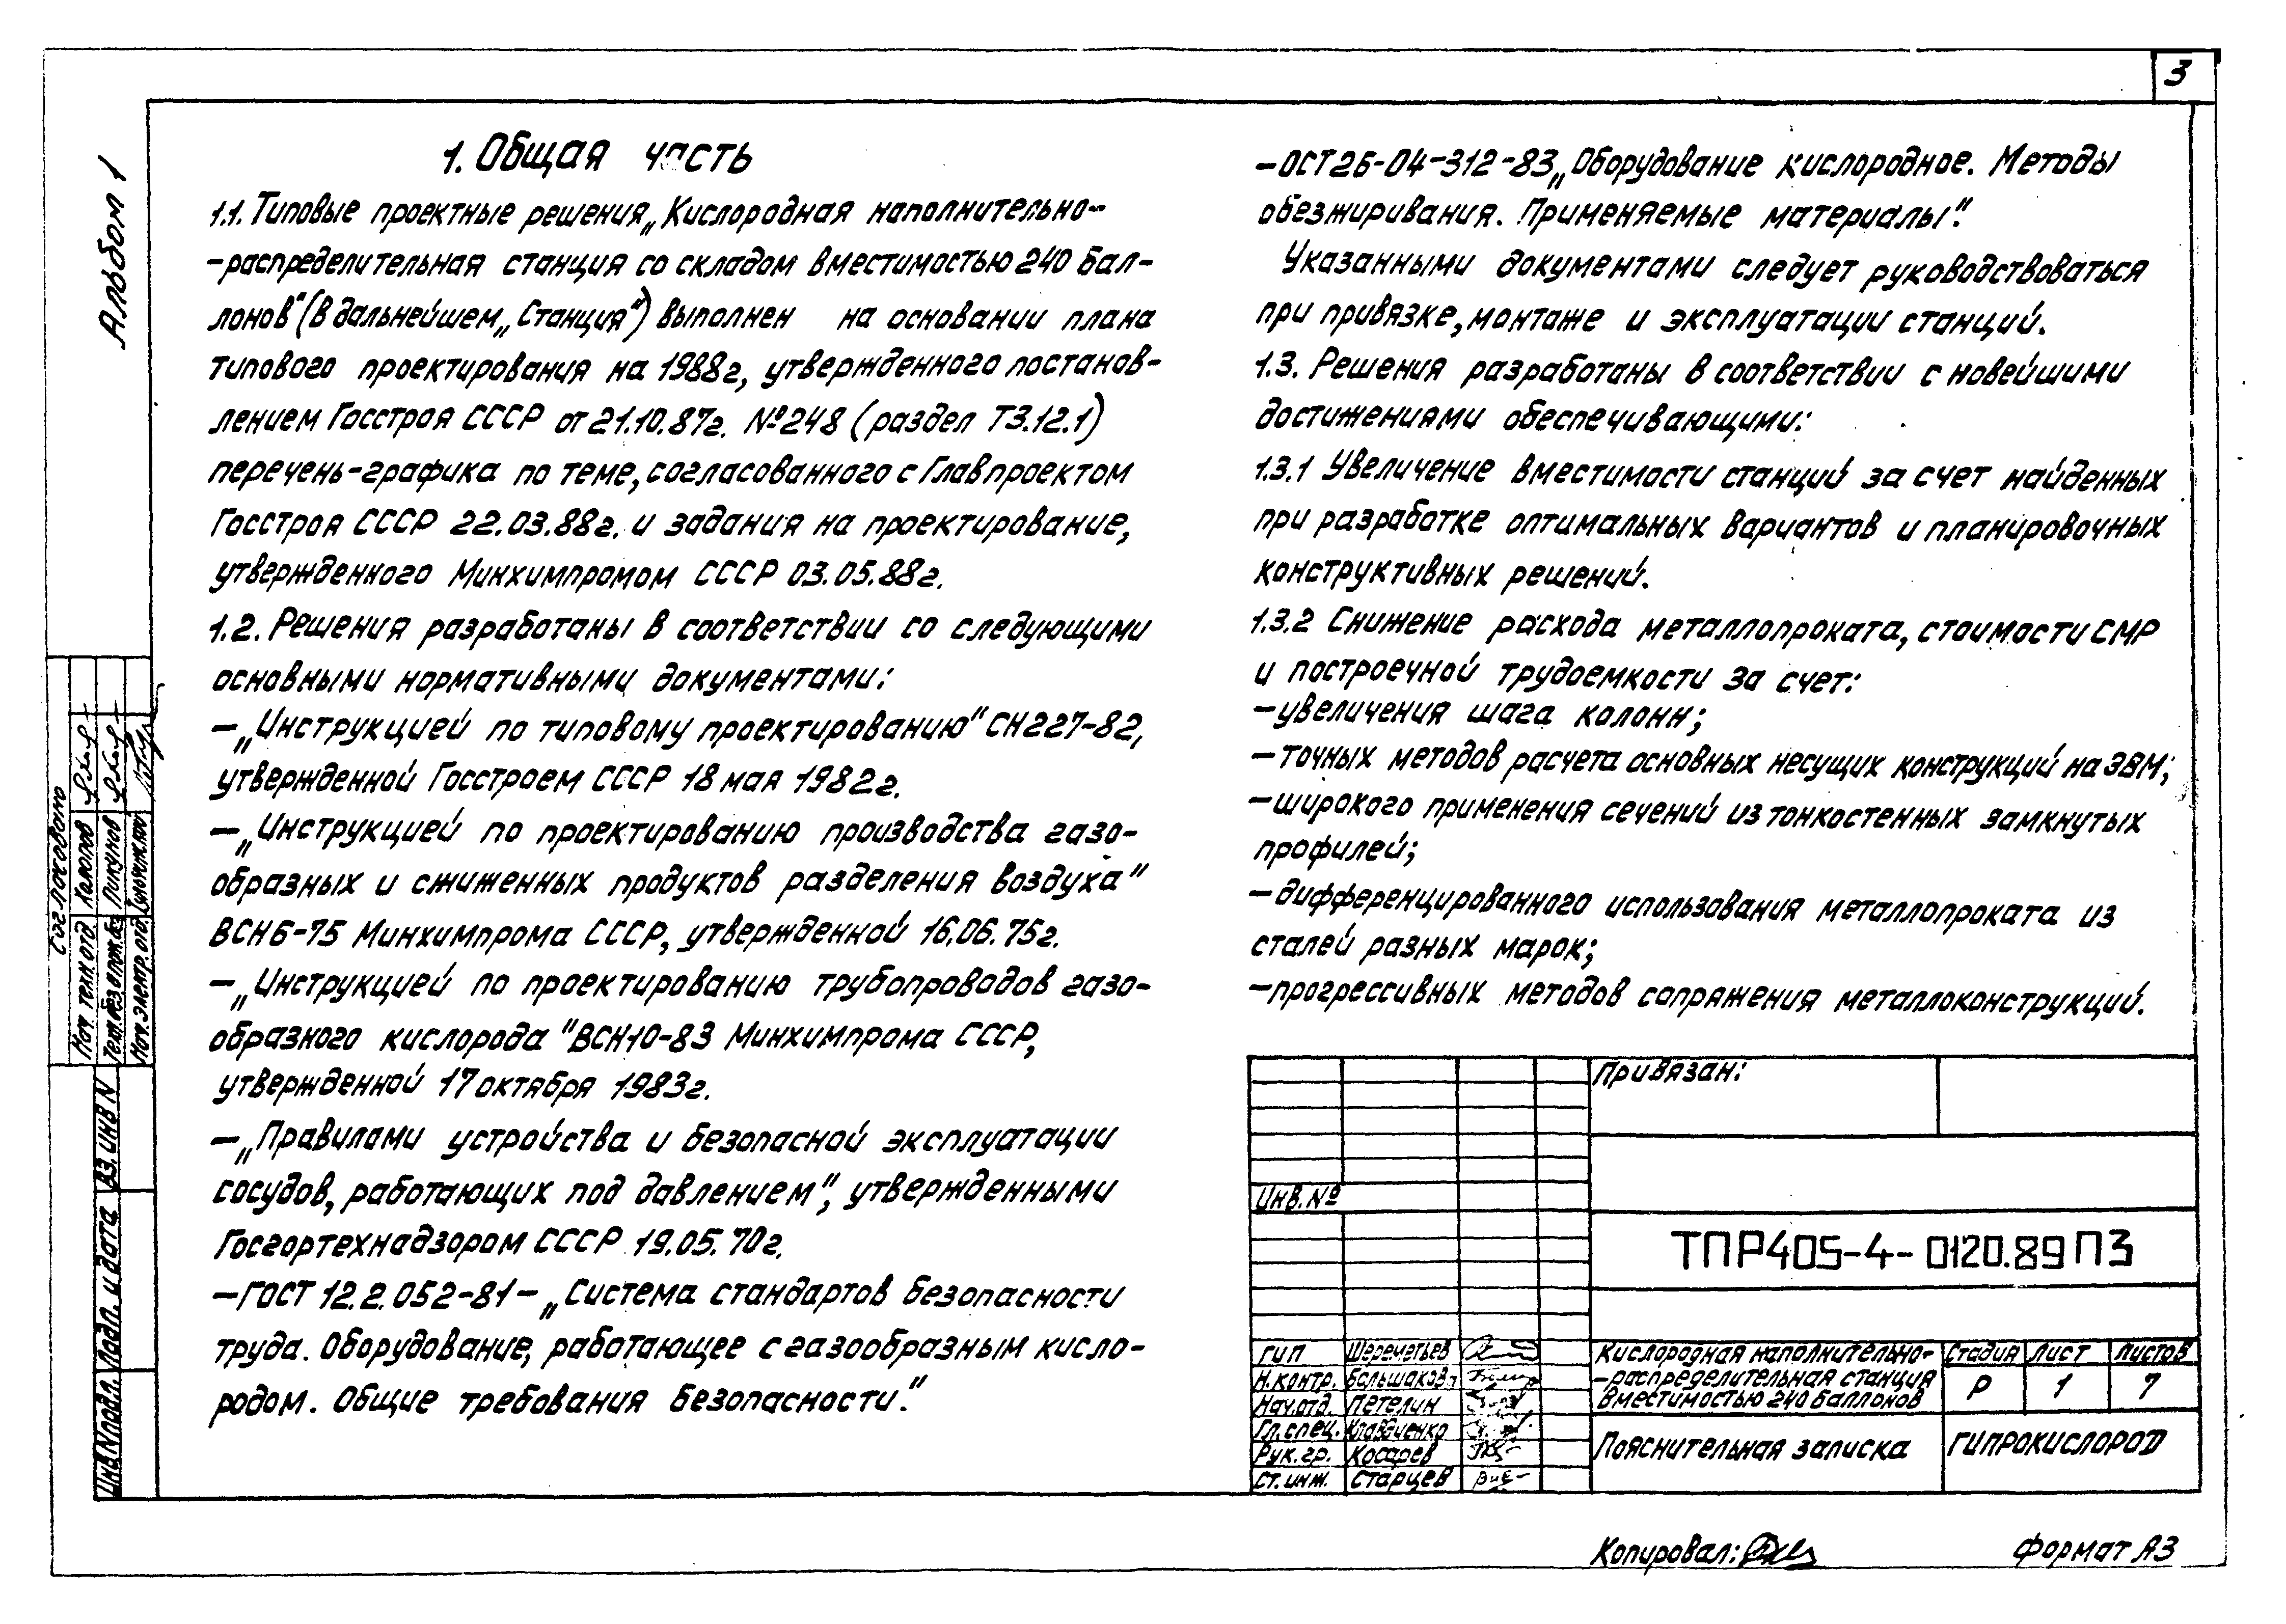 3
Альбом 1
1. Общая часть
1.1. Типовые проектные решения „Кислородная наполнительно-
-распределительная станция со складом вместимостью 240 бал-
лонов" (в дальнейшем „Станция") выполнен на основании плана
типового проектирования на 1988г, утвержденного постанов-
лением Госстроя СССР от 21.10.87г. №248 (раздел Т3.12.1)
перечень-графика по теме, согласованного с Главпроектом
Госстроя СССР 22.03.88г. и задания на проектирование,
утвержденного Минхимпромом СССР 03.05.88г.
1.2. Решения разработаны в соответствии со следующими
основными нормативными документами:
— „Инструкцией по типовому проектированию" СН227-82,
утвержденной Госстроем СССР 18 мая 1982г.
— „Инструкцией по проектированию производства газо-
образных и сжиженных продуктов разделения воздуха"
ВСН6-75 Минхимпрома СССР, утвержденной 16.06.75г.
— „Инструкцией по проектированию трубопроводов газо-
образного кислорода "ВСН10-83 Минхимпрома СССР,
утвержденной 17 октября 1983г.
— „Правилами устройства и безопасной эксплуатации
сосудов, работающих под давлением", утвержденными
Госгортехнадзором СССР 19.05.70г.
—ГОСТ 12.2.052-81- „Система стандартов безопасности
труда. Оборудование, работающее с газообразным кисло-
родом. Общие требования безопасности."
—ОСТ26-04-312-83 „Оборудование кислородное. Методы
обезжиривания. Применяемые материалы".
Указанными документами следует руководствоваться
при привязке, монтаже и эксплуатации станций.
1.3. Решения разработаны в соответствии с новейшими
достижениями обеспечивающими:
1.3.1 Увеличение вместимости станций за счет найденных
при разработке оптимальных вариантов и планировочных
конструктивных решений.
1.3.2 Снижение расхода металлопроката, стоимости СМР
и построечной трудоемкости за счет:
—увеличения шага колонн;
—точных методов расчета основных несущих конструкций на ЭВМ;
—широкого применения сечений из тонкостенных замкнутых
профилей;
—дифференцированного использования металлопроката из
сталей разных марок;
—прогрессивных методов сопряжения металлоконструкций.
Согласовано
Нач техн отд
Нач. электр. отд.
Пикунов
Вз. инв N
Подп. и дата
Инв.N подл.
Привязан:
Инв. №
ТПР405-4-0120.89 ПЗ
ГИП Шереметьев
Н.контр. Большакова
Нач.отд. Петелин
Гл.спец.
Рук.гр. Косарев
Ст.инж. Старцев
Кислородная наполнительно-
-распределительная станция
вместимостью 240 баллонов
Стадия Лист Листов
Р 1 7
Пояснительная записка
ГИПРОКИСЛОРОД
Копировал:
Формат А3